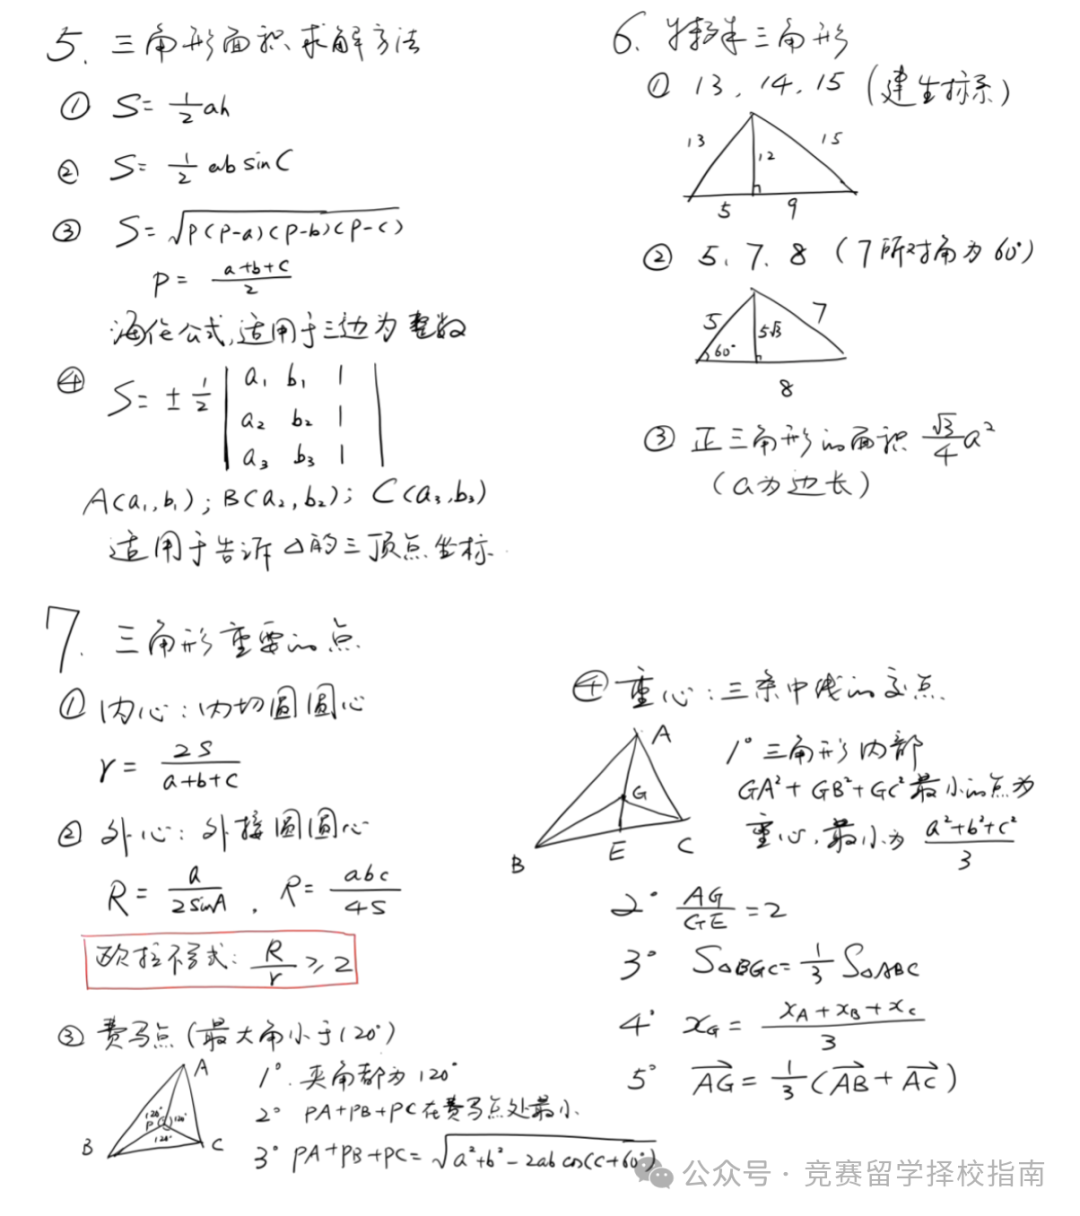 5. 三角形面积求解方法
① S= 1/2 ah
② S= 1/2 ab sin C
③ S=√P(P-a)(P-b)(P-c)
P= (a+b+c)/2
海伦公式,适用于三边为整数
④ S= ± 1/2 | a₁ b₁ 1 |
| a₂ b₂ 1 |
| a₃ b₃ 1 |
A(a₁,b₁); B(a₂,b₂); C(a₃,b₃)
适用于告诉△的三顶点坐标.
6. 特殊三角形
① 13, 14, 15 (建坐标系)
13 15
12
5 9
② 5, 7, 8 (7所对角为60°)
5 7
5√3
60°
8
③ 正三角形的面积 √3/4 a²
(a为边长)
7. 三角形重要的点
① 内心: 内切圆圆心
r= 2S/(a+b+c)
② 外心: 外接圆圆心
R= a/(2sinA), R= abc/4S
欧拉不等式: R/r ≥2
③ 费马点 (最大角小于120°)
A
120° P 120°
120°
B C
1°. 夹角都为120°
2° PA+PB+PC在费马点处最小.
3° PA+PB+PC=√a²+b²-2ab cos(C+60°)
④ 重心: 三条中线的交点
A
G
B E C
1° 三角形内部
GA²+GB²+GC²最小的点为
重心,最小为 (a²+b²+c²)/3
2° AG/GE =2
3° S△BGC= 1/3 S△ABC
4° x_G= (x_A+x_B+x_C)/3
5° AG⃗= 1/3 (AB⃗+AC⃗)
公众号 · 竞赛留学择校指南